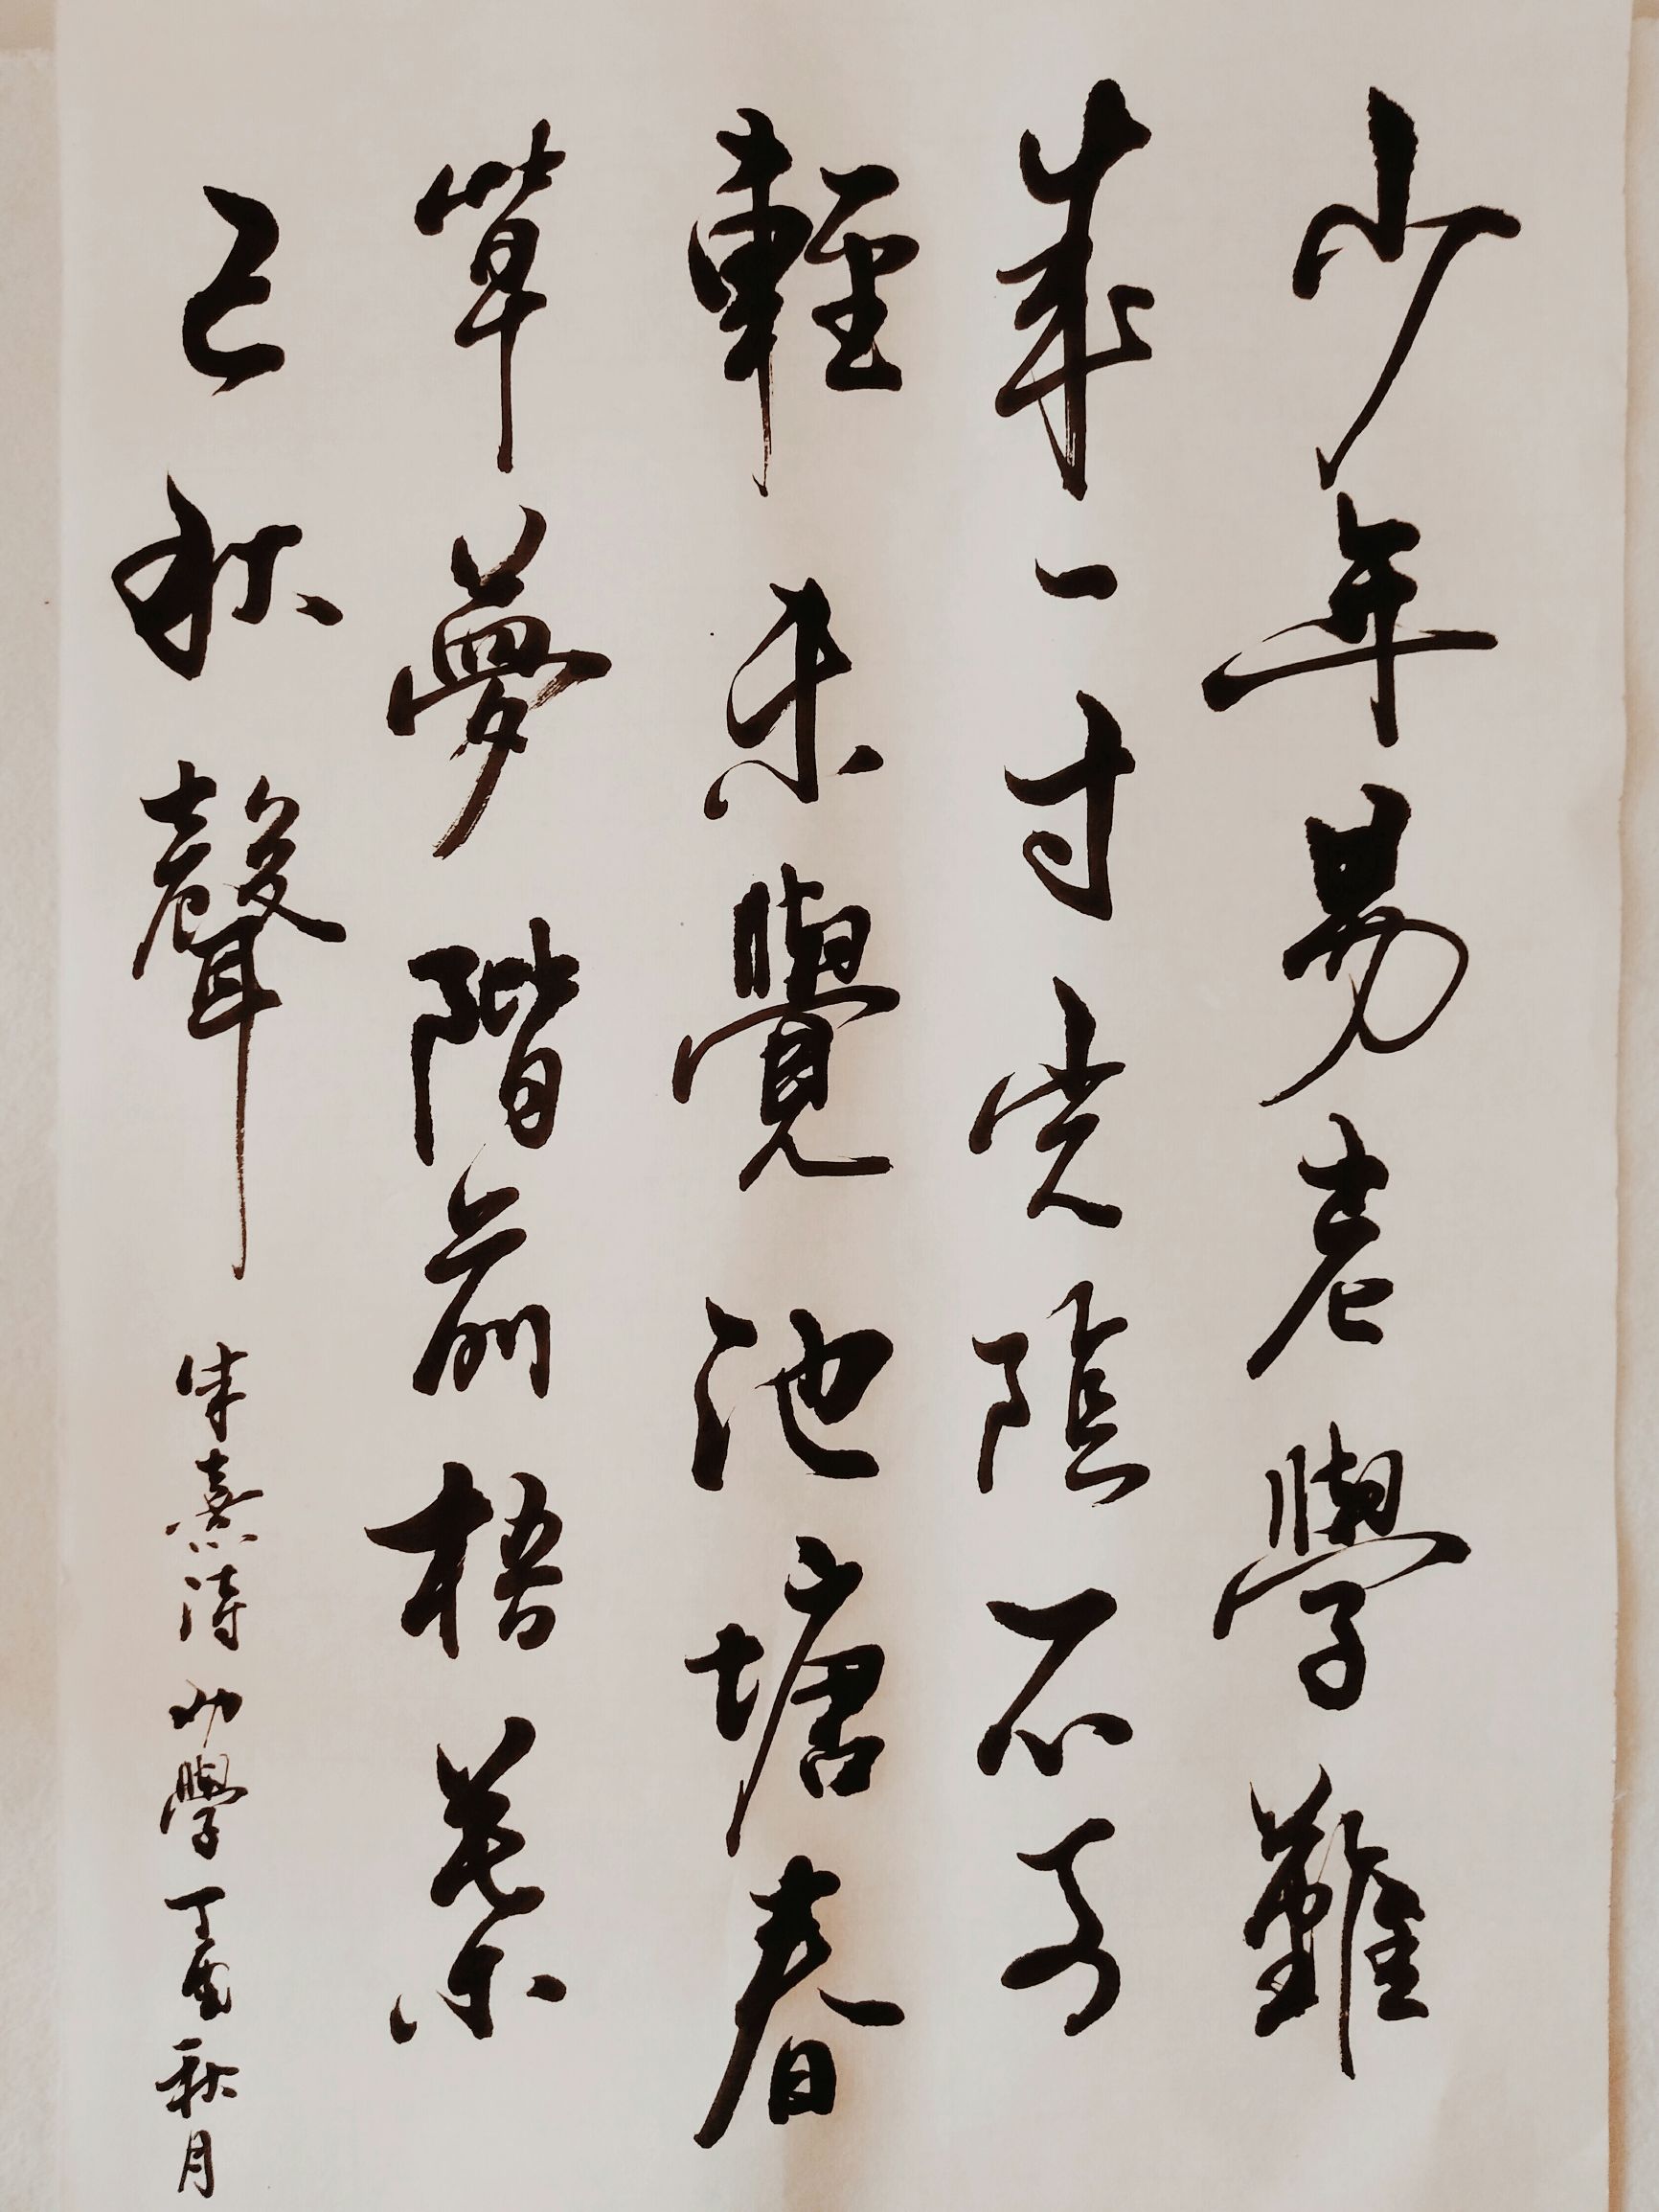 少年易老學難
成一寸光陰不可
輕未覺池塘春
草夢階前梧葉
已秋聲
朱熹詩學丁酉秋月